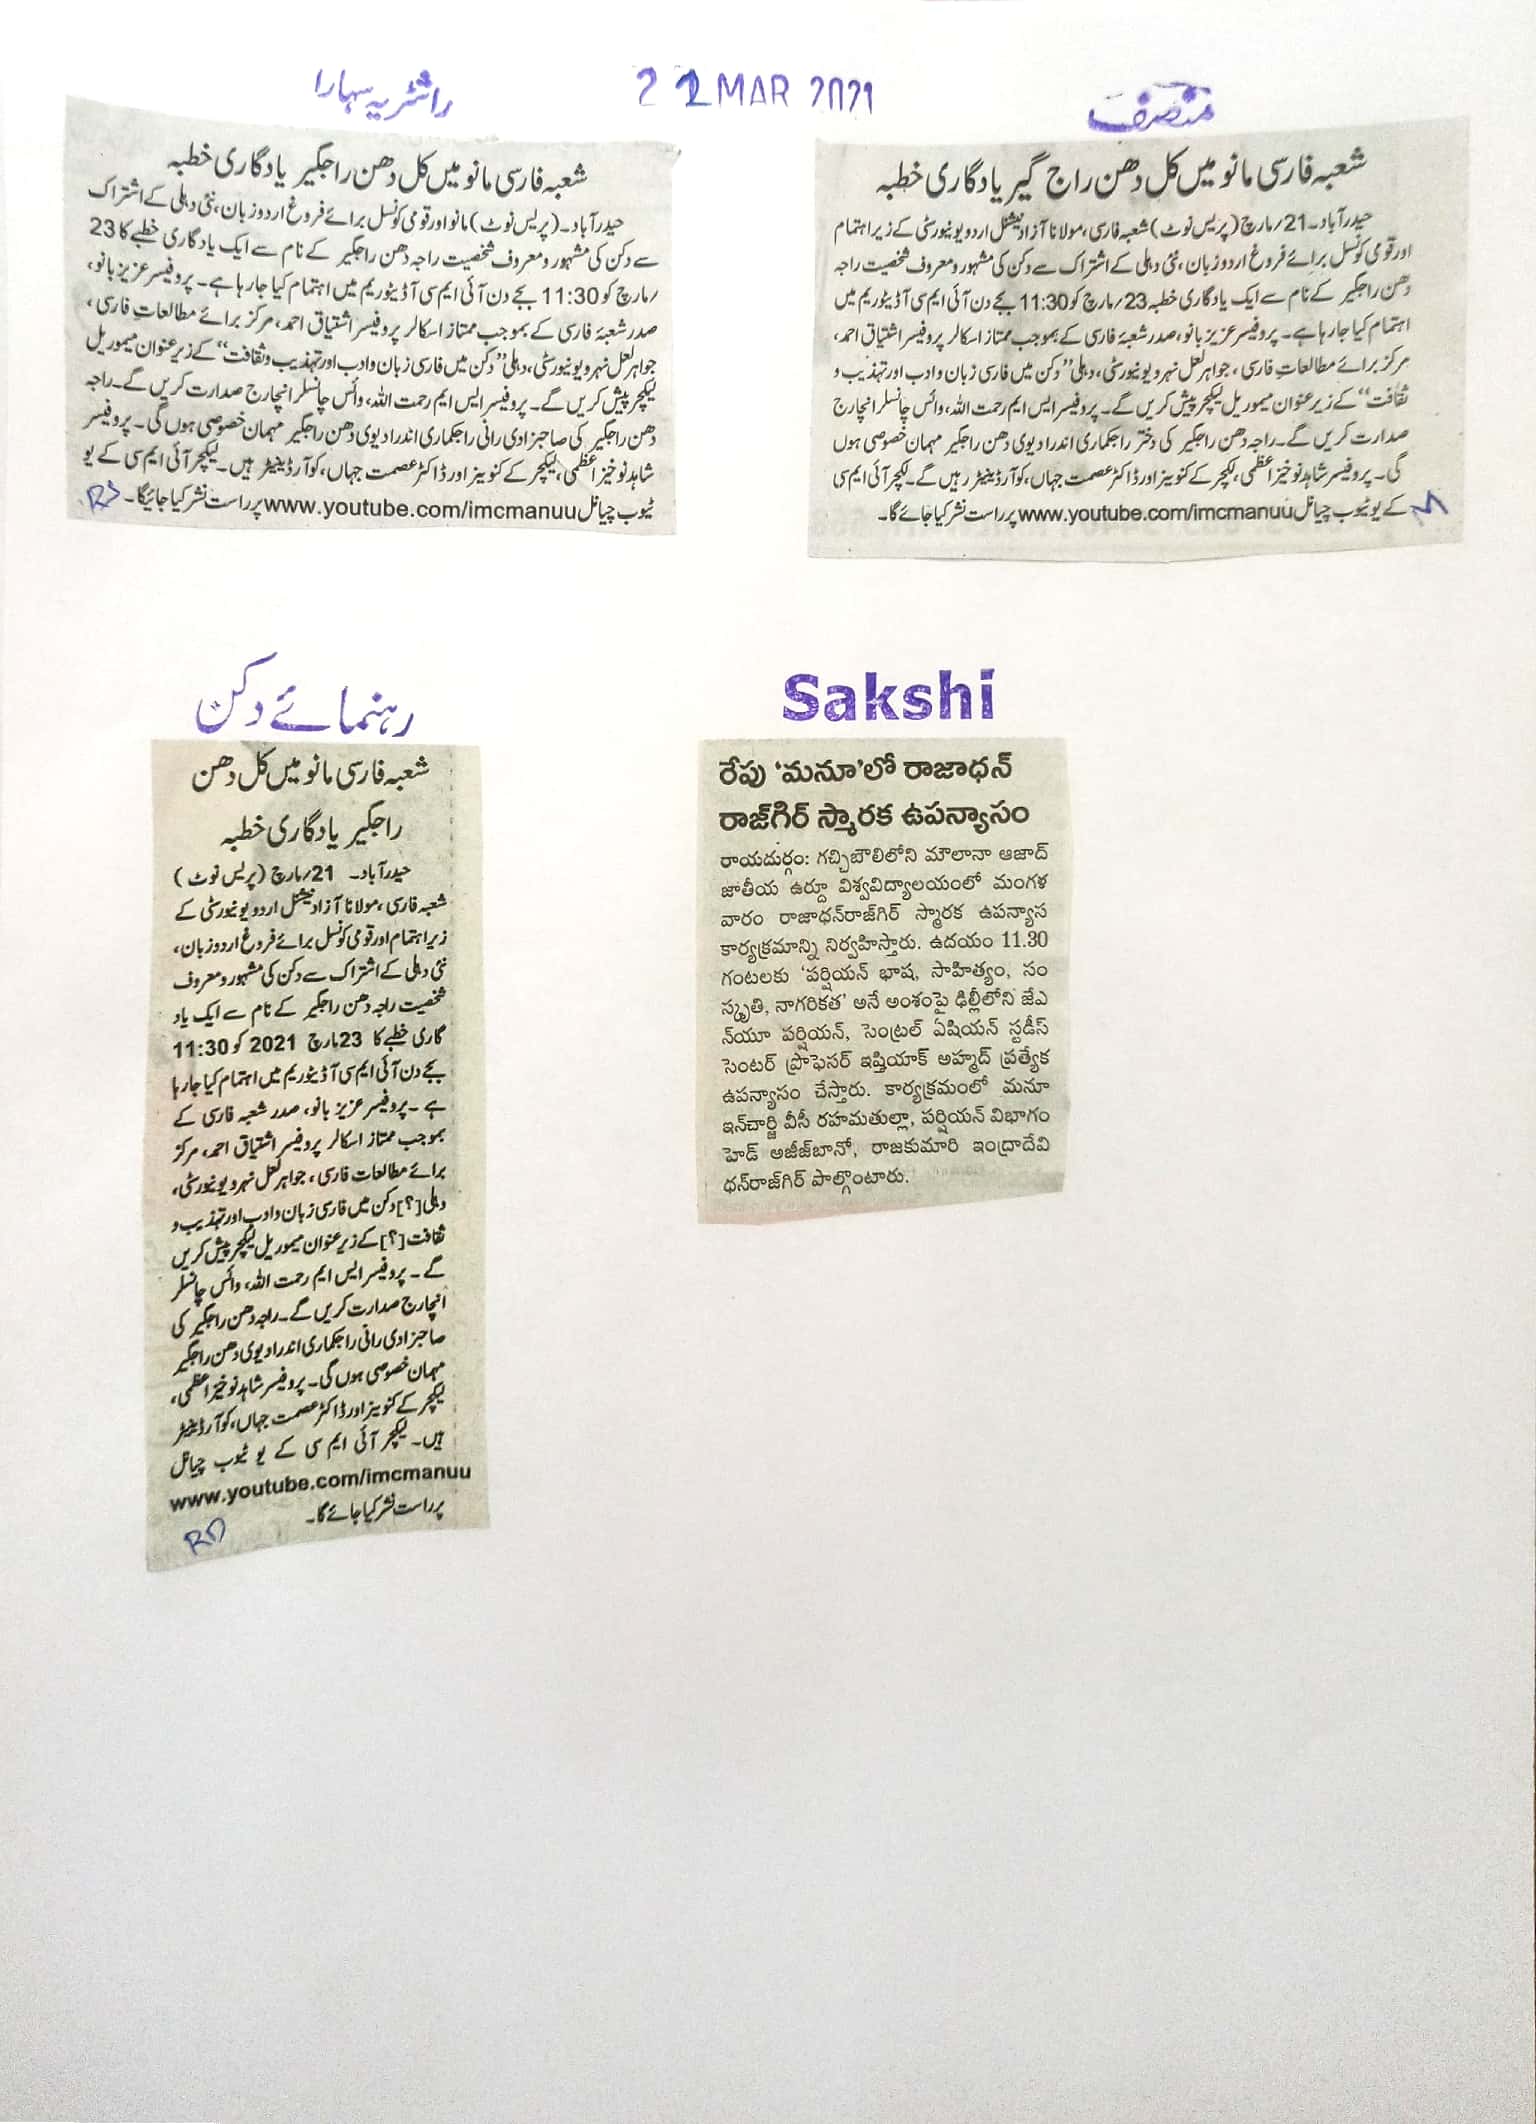 راشٹریہ سہارا
22 MAR 2021
منصف
شعبہ فارسی مانو میں کل دھن راجگیر یادگاری خطبہ
حیدرآباد۔ (پریس نوٹ) مانو اور قومی کونسل برائے فروغ اردو زبان، نئی دہلی کے اشتراک
سے دکن کی مشہور و معروف شخصیت راجہ دھن راجگیر کے نام سے ایک یادگاری خطبے کا 23
/مارچ کو 11:30 بجے دن آئی ایم سی آڈیٹوریم میں اہتمام کیا جا رہا ہے۔ پروفیسر عزیز بانو،
صدر شعبۂ فارسی کے بموجب ممتاز اسکالر پروفیسر اشتیاق احمد، مرکز برائے مطالعاتِ فارسی،
جواہر لعل نہرو یونیورسٹی، دہلی ”دکن میں فارسی زبان و ادب اور تہذیب و ثقافت“ کے زیر عنوان میموریل
لیکچر پیش کریں گے۔ پروفیسر ایس ایم رحمت اللہ، وائس چانسلر انچارج صدارت کریں گے۔ راجہ
دھن راجگیر کی صاحبزادی رانی راجکماری اندرا دیوی دھن راجگیر مہمان خصوصی ہوں گی۔ پروفیسر
شاہد نوخیز اعظمی، لیکچر کے کنوینر اور ڈاکٹر عصمت جہاں، کوآرڈینیٹر ہیں۔ لیکچر آئی ایم سی کے یو
ٹیوب چیانل www.youtube.com/imcmanuu پر راست نشر کیا جائیگا۔
RS
شعبہ فارسی مانو میں کل دھن راج گیر یادگاری خطبہ
حیدرآباد۔ 21/مارچ (پریس نوٹ) شعبہ فارسی، مولانا آزاد نیشنل اردو یونیورسٹی کے زیر اہتمام
اور قومی کونسل برائے فروغ اردو زبان، نئی دہلی کے اشتراک سے دکن کی مشہور و معروف شخصیت راجہ
دھن راجگیر کے نام سے ایک یادگاری خطبہ 23/مارچ کو 11:30 بجے دن آئی ایم سی آڈیٹوریم میں
اہتمام کیا جا رہا ہے۔ پروفیسر عزیز بانو، صدر شعبۂ فارسی کے بموجب ممتاز اسکالر پروفیسر اشتیاق احمد،
مرکز برائے مطالعاتِ فارسی، جواہر لعل نہرو یونیورسٹی، دہلی ”دکن میں فارسی زبان و ادب اور تہذیب و
ثقافت“ کے زیر عنوان میموریل لیکچر پیش کریں گے۔ پروفیسر ایس ایم رحمت اللہ، وائس چانسلر انچارج
صدارت کریں گے۔ راجہ دھن راجگیر کی دختر راجکماری اندرا دیوی دھن راجگیر مہمان خصوصی ہوں
گی۔ پروفیسر شاہد نوخیز اعظمی، لیکچر کے کنوینر اور ڈاکٹر عصمت جہاں، کوآرڈینیٹر رہیں گے۔ لکچر آئی ایم سی
کے یو ٹیوب چیانل www.youtube.com/imcmanuu پر راست نشر کیا جائے گا۔
M
رہنمائے دکن
شعبہ فارسی مانو میں کل دھن
راجگیر یادگاری خطبہ
حیدرآباد۔ 21/مارچ (پریس نوٹ)
شعبہ فارسی، مولانا آزاد نیشنل اردو یونیورسٹی کے
زیر اہتمام اور قومی کونسل برائے فروغ اردو زبان،
نئی دہلی کے اشتراک سے دکن کی مشہور و معروف
شخصیت راجہ دھن راجگیر کے نام سے ایک یاد
گاری خطبے کا 23 مارچ 2021 کو 11:30
بجے دن آئی ایم سی آڈیٹوریم میں اہتمام کیا جا رہا
ہے۔ پروفیسر عزیز بانو، صدر شعبہ فارسی کے
بموجب ممتاز اسکالر پروفیسر اشتیاق احمد، مرکز
برائے مطالعات فارسی، جواہر لعل نہرو یونیورسٹی،
دہلی [؟] دکن میں فارسی زبان و ادب اور تہذیب و
ثقافت [؟] کے زیر عنوان میموریل لیکچر پیش کریں
گے۔ پروفیسر ایس ایم رحمت اللہ، وائس چانسلر
انچارج صدارت کریں گے۔ راجہ دھن راجگیر کی
صاحبزادی رانی راجکماری اندرا دیوی دھن راجگیر
مہمان خصوصی ہوں گی۔ پروفیسر شاہد نوخیز اعظمی،
لیکچر کے کنوینر اور ڈاکٹر عصمت جہاں، کوآرڈینیٹر
ہیں۔ لیکچر آئی ایم سی کے یو ٹیوب چیانل
www.youtube.com/imcmanuu
پر راست نشر کیا جائے گا۔
RD
Sakshi
రేపు ‘మనూ’లో రాజాధన్
రాజ్‌గిర్ స్మారక ఉపన్యాసం
రాయదుర్గం: గచ్చిబౌలిలోని మౌలానా ఆజాద్
జాతీయ ఉర్దూ విశ్వవిద్యాలయంలో మంగళ
వారం రాజాధన్‌రాజ్‌గిర్ స్మారక ఉపన్యాస
కార్యక్రమాన్ని నిర్వహిస్తారు. ఉదయం 11.30
గంటలకు ‘పర్షియన్ భాష, సాహిత్యం, సం
స్కృతి, నాగరికత’ అనే అంశంపై ఢిల్లీలోని జేఎ
న్‌యూ పర్షియన్, సెంట్రల్ ఏషియన్ స్టడీస్
సెంటర్ ప్రొఫెసర్ ఇష్తియాక్ అహ్మద్ ప్రత్యేక
ఉపన్యాసం చేస్తారు. కార్యక్రమంలో మనూ
ఇన్‌చార్జి వీసీ రహమతుల్లా, పర్షియన్ విభాగం
హెడ్ అజీజ్‌బానో, రాజకుమారి ఇంద్రాదేవి
ధన్‌రాజ్‌గిర్ పాల్గొంటారు.